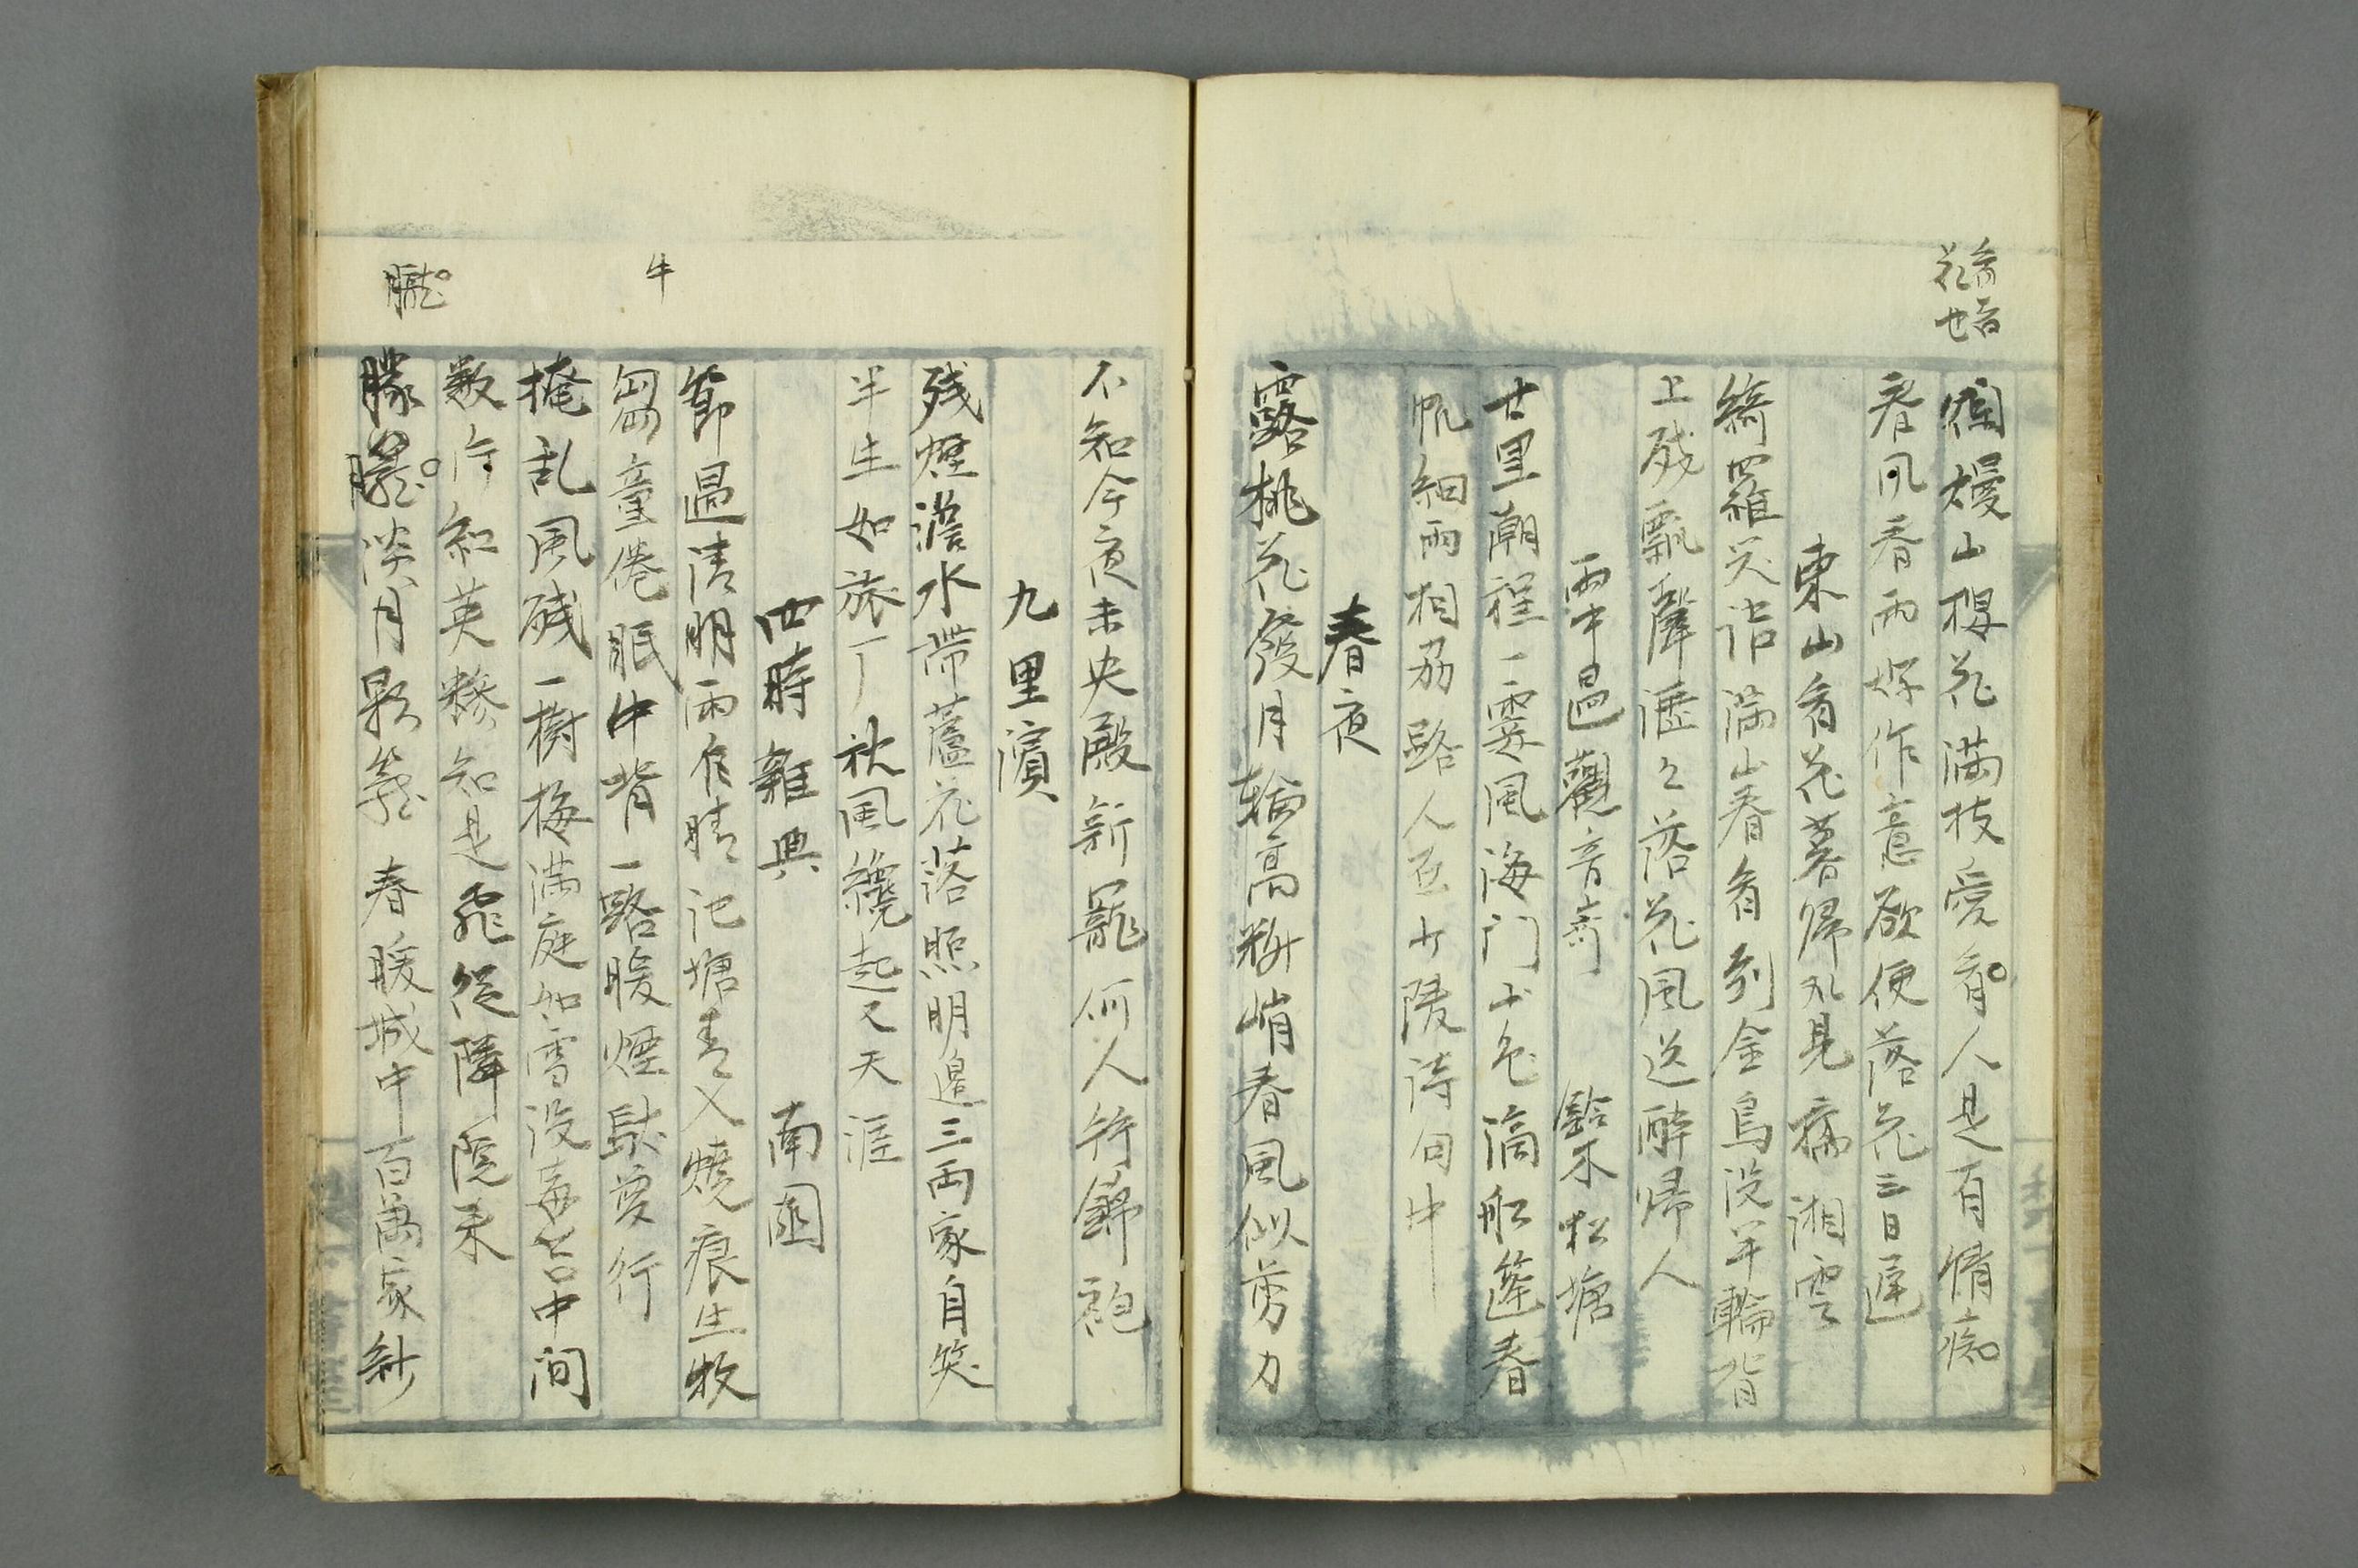 看花
音也
爛熳山桜花満枝愛看人是有情痴
春風春雨好作意欲便落花三日遅
東山看花暮帰所見 痛湘雲
綺羅笑語満山春看到金烏没半輪背
上残瓢聲瀝々落花風送酔帰人
雨中過觀音崎 鈴木松塘
廿里潮程一霎風海门山色滴船篷春
帆細雨相州路人在少陵詩句中
春夜
露桃花發月輪高料峭春風似剪刀
不知今夜未央殿新寵何人得錦袍
九里濱
残煙澹水帶蘆花落照明邊三両家自笑
半生如旅丁秋風纔起又天涯
四時雜興 南園
節過清明雨乍晴記塘青入燒痕生牧
芻童倦眠牛背一路暖煙馱夢行
牛
掩乱風残一樹梅満庭如雪没莓苔中间
數片紅英糝知是飛從隣院来
朦朧淡月影籠春暖城中百萬家紗
朧